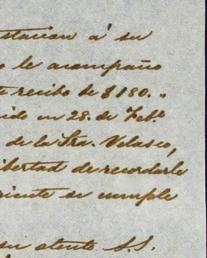 estarian á su
o le acompaño
te recibo de $180..
ido en 28. de Feb.o
de la Sra. Velasco,
libertad de recordarle
riente se cumple
su atento S.S.